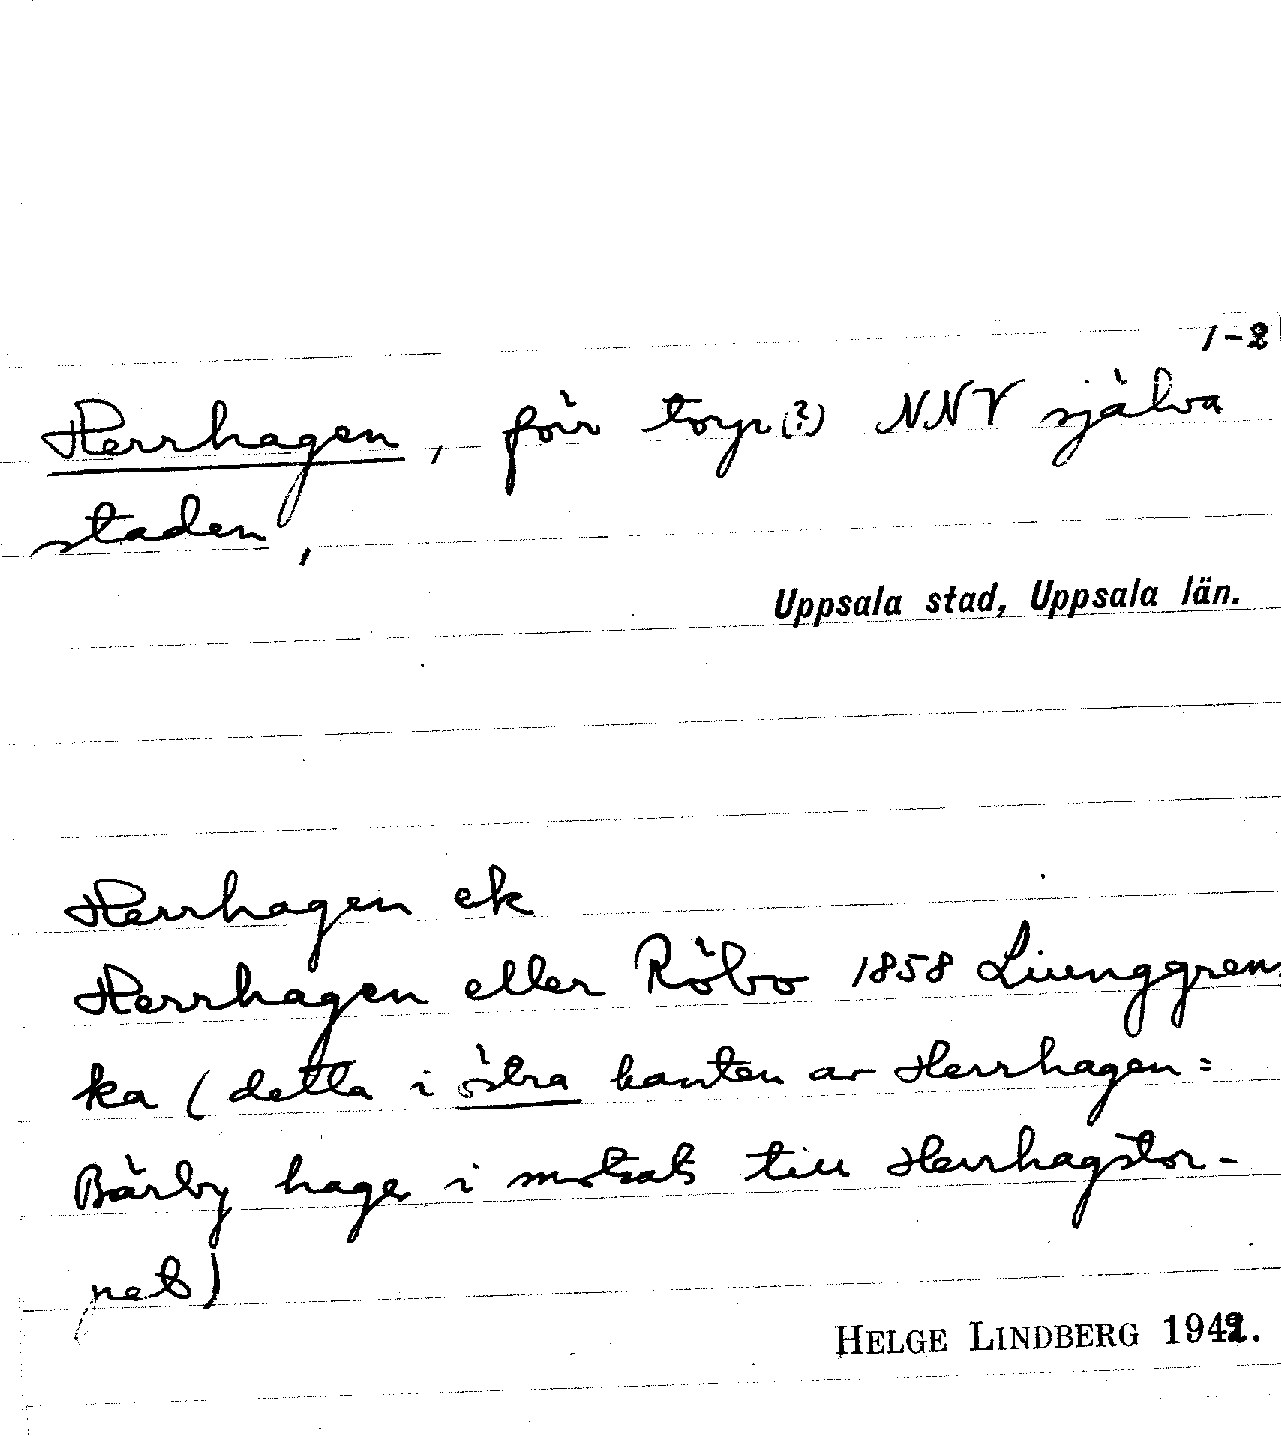 1-2
Herrhagen, förr torp(?) NNV själva
staden,
Uppsala stad, Uppsala län.
Herrhagen ek
Herrhagen eller Röbo 1858 Ljunggren
ka (detta i östra kanten av Herrhagen =
Bärby hage i motsats till Herrhagstor-
pet)
HELGE LINDBERG 1942.